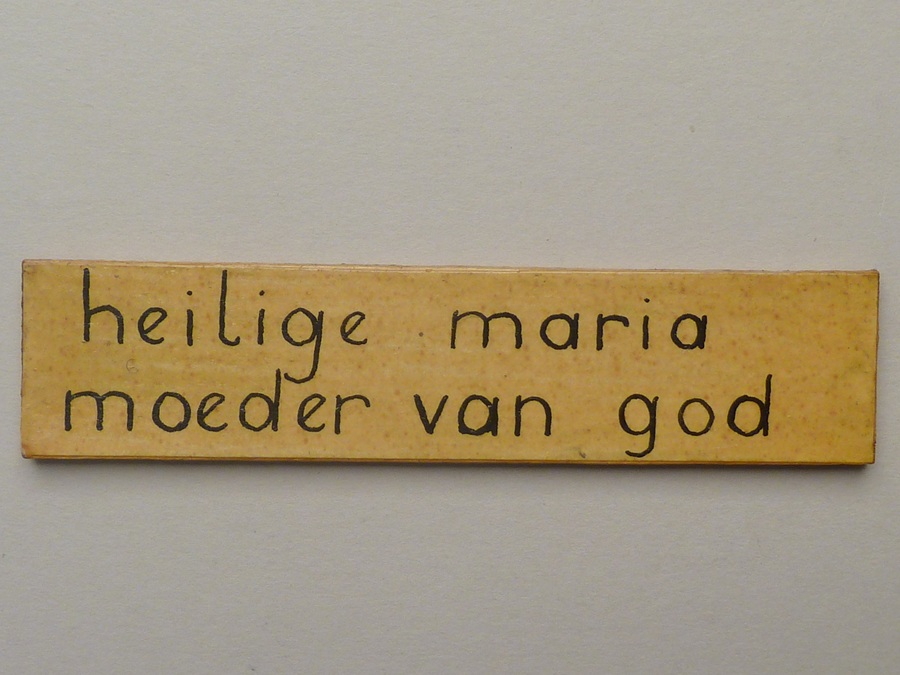 heilige maria
moeder van god